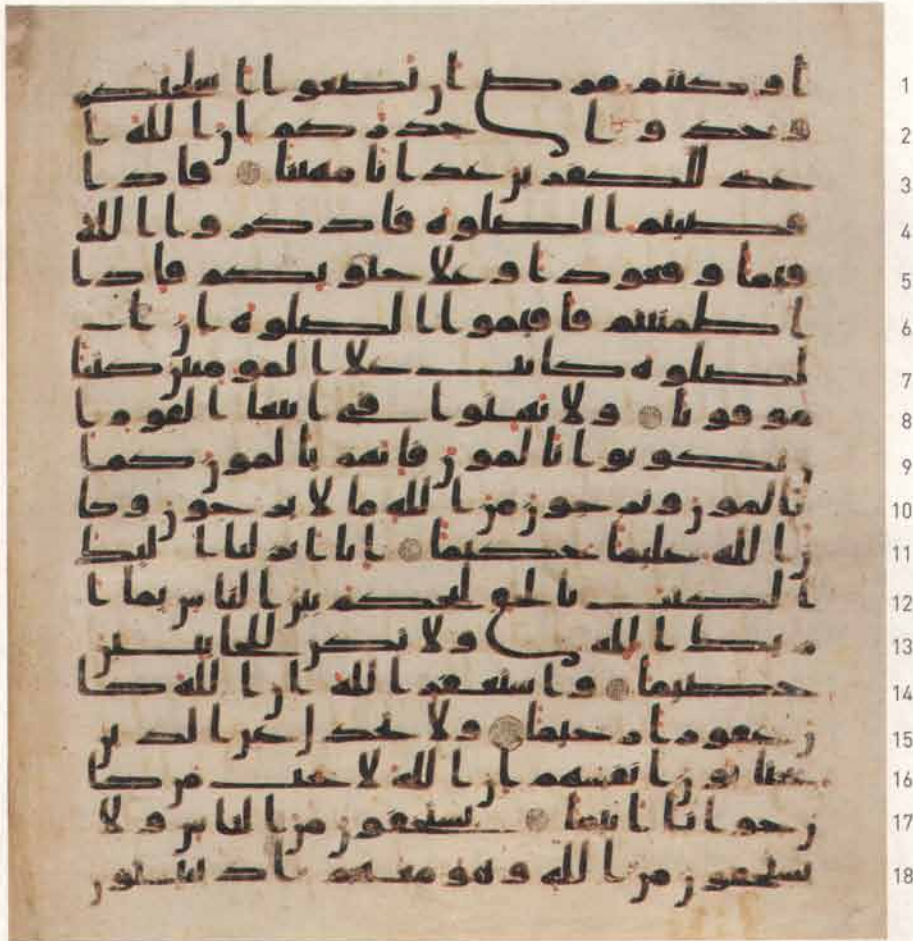 او كنتم مرضى ان تضعوا اسلحتكم 1
وخذوا حذركم ان الله ا 2
عد للكفرين عذابا مهينا فاذا 3
قضيتم الصلوه فاذكروا الله 4
قيما وقعودا وعلا جنوبكم فاذا 5
اطمننتم فاقيموا الصلوه ان ا 6
لصلوه كانت علا المومنين كتبا 7
موقوتا ولا تهنوا في ابتغا القوم ا 8
ن تكونوا تالمون فانهم يالمون كما 9
تالمون وترجون من الله ما لا يرجون وكا 10
ن الله عليما حكيما انا انزلنا اليك 11
الكتب بالحق لتحكم بين الناس بما ا 12
ريك الله ولا تكن للخاينين 13
خصيما واستغفر الله ان الله كا 14
ن غفورا رحيما ولا تجدل عن الذين 15
يختانون انفسهم ان الله لا يحب من كا 16
ن خوانا اثيما يستخفون من الناس ولا 17
يستخفون من الله وهو معهم اذ يبيتون 18